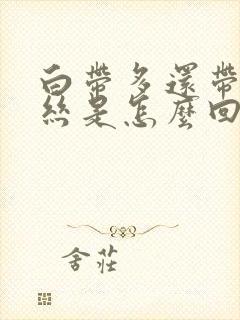 白帶多還帶
絲是怎麼回
舍莊